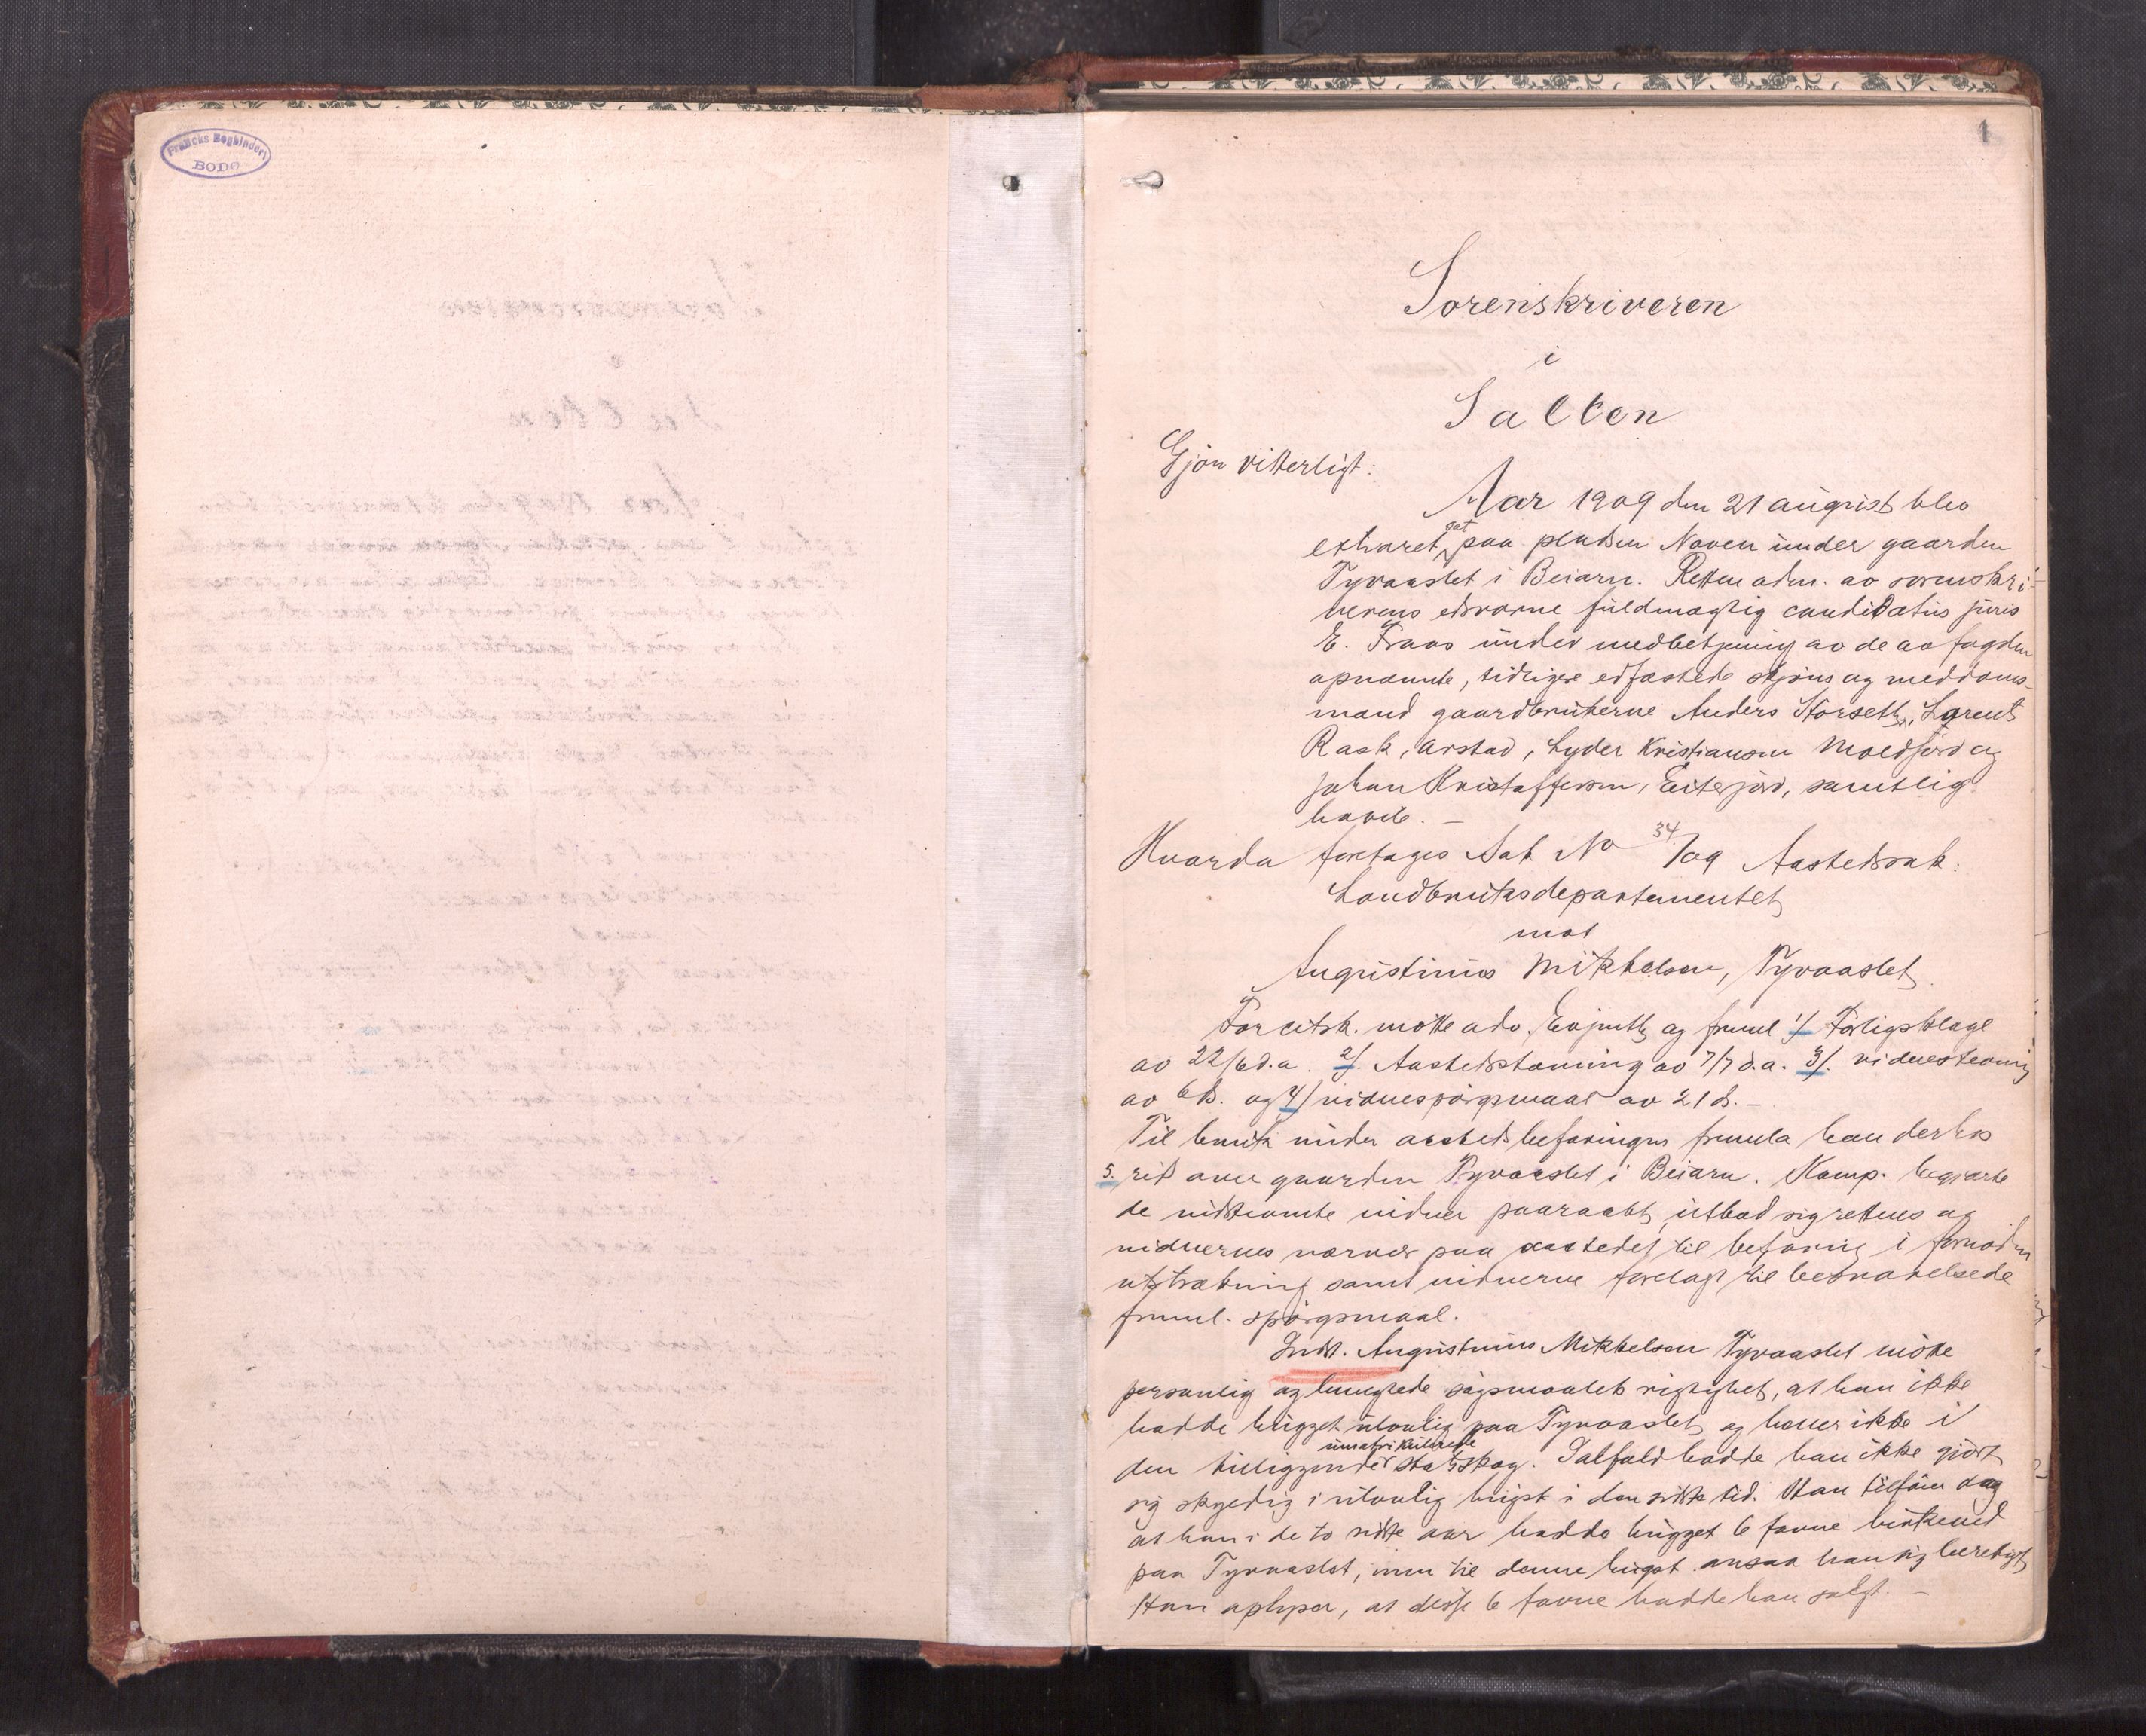 Francks Bogbinderi
BODØ
1
Sorenskriveren
i
Salten
Gjör vitterligt:
Aar 1909 den 21 august blev
ext ret sat paa pladsen Noven under gaarden
Tyvaaslet i Beiarn. Retten adm. av sorenskri-
verens edsvorne fuldmægtig candidatus juris
E. under medbetjening av de av fogden
opnævnte, tidligere edfæstede skjöns og meddoms-
mænd gaardbrukerne Anders Storseth, Lorents
Rask, Arstad, Lyder Kristiansen Moldjord og
Johan Kristoffersen, Eiterjord, samtlig
havde. -
Hvorda foretages Sak No 34/09 Aastedssak:
Landbruksdepartementet
mot
Augustinus Mikkelsen, Tyvaaslet.
For citsk. mötte adv. Evjenth og freml 1/ Forligsklage
av 22/6 d.a. 2/. Aastedsstævning av 7/7 d.a. 3/. vidnestevning
av 6 ds. og 4/ vidnespörgsmaal av 21 ds. -
Til bruk under aastedsbefaringen fremla han derhos
5. rids over gaarden Tyvaaslet i Beiarn. Komp. begjærte
de indstevnte vidner paaraabt, utbad sig rettens og
vidnernes nærvær paa aastedet til befaring i fornöden
utstrækning samt vidnerne forelagt til besvarelse de
freml. spörgsmaal.
Indst. Augustinus Mikkelsen Tyvaaslet mötte
personlig og benegtede sögsmaalets rigtighet, at han ikke
hadde hugget ulovlig paa Tyvaaslet og heller ikke i
den tilliggende umatrikulerede statsskog. Ialfald hadde han ikke gjort
sig skyldig i ulovlig hugst i den sidste tid. Han tilföier dog
at han i de to sidste aar hadde hugget 6 favne birkeved
paa Tyvaaslet, men til denne hugst ansaa han sig berettiget
Han oplyser, at disse 6 favne hadde han solgt. -